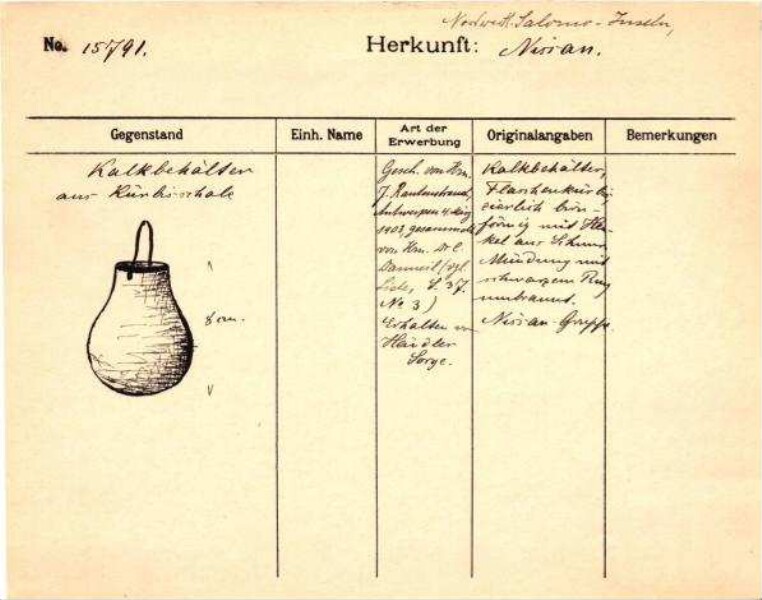 Nordwestl. Salomo-Inseln,
No. 15791. Herkunft: Nissan.
Gegenstand
Kalkbehälter
aus Kürbisschale
8 cm.
Einh. Name
Art der
Erwerbung
Gesch. von Hrn.
J. Rautenstrauch,
Antwerpen 4. März
1903, gesammelt
von Hrn. Dr. C.
Danneil (vgl.
S. 37.
No 3)
Erhalten v.
Händler
Sorge.
Originalangaben
Kalkbehälter,
Flaschenkürbis,
zierlich birn-
förmig mit Hen-
kel aus Schnur
Mündung mit
schwarzem Ring
umbrannt.
Nissan-Gruppe.
Bemerkungen